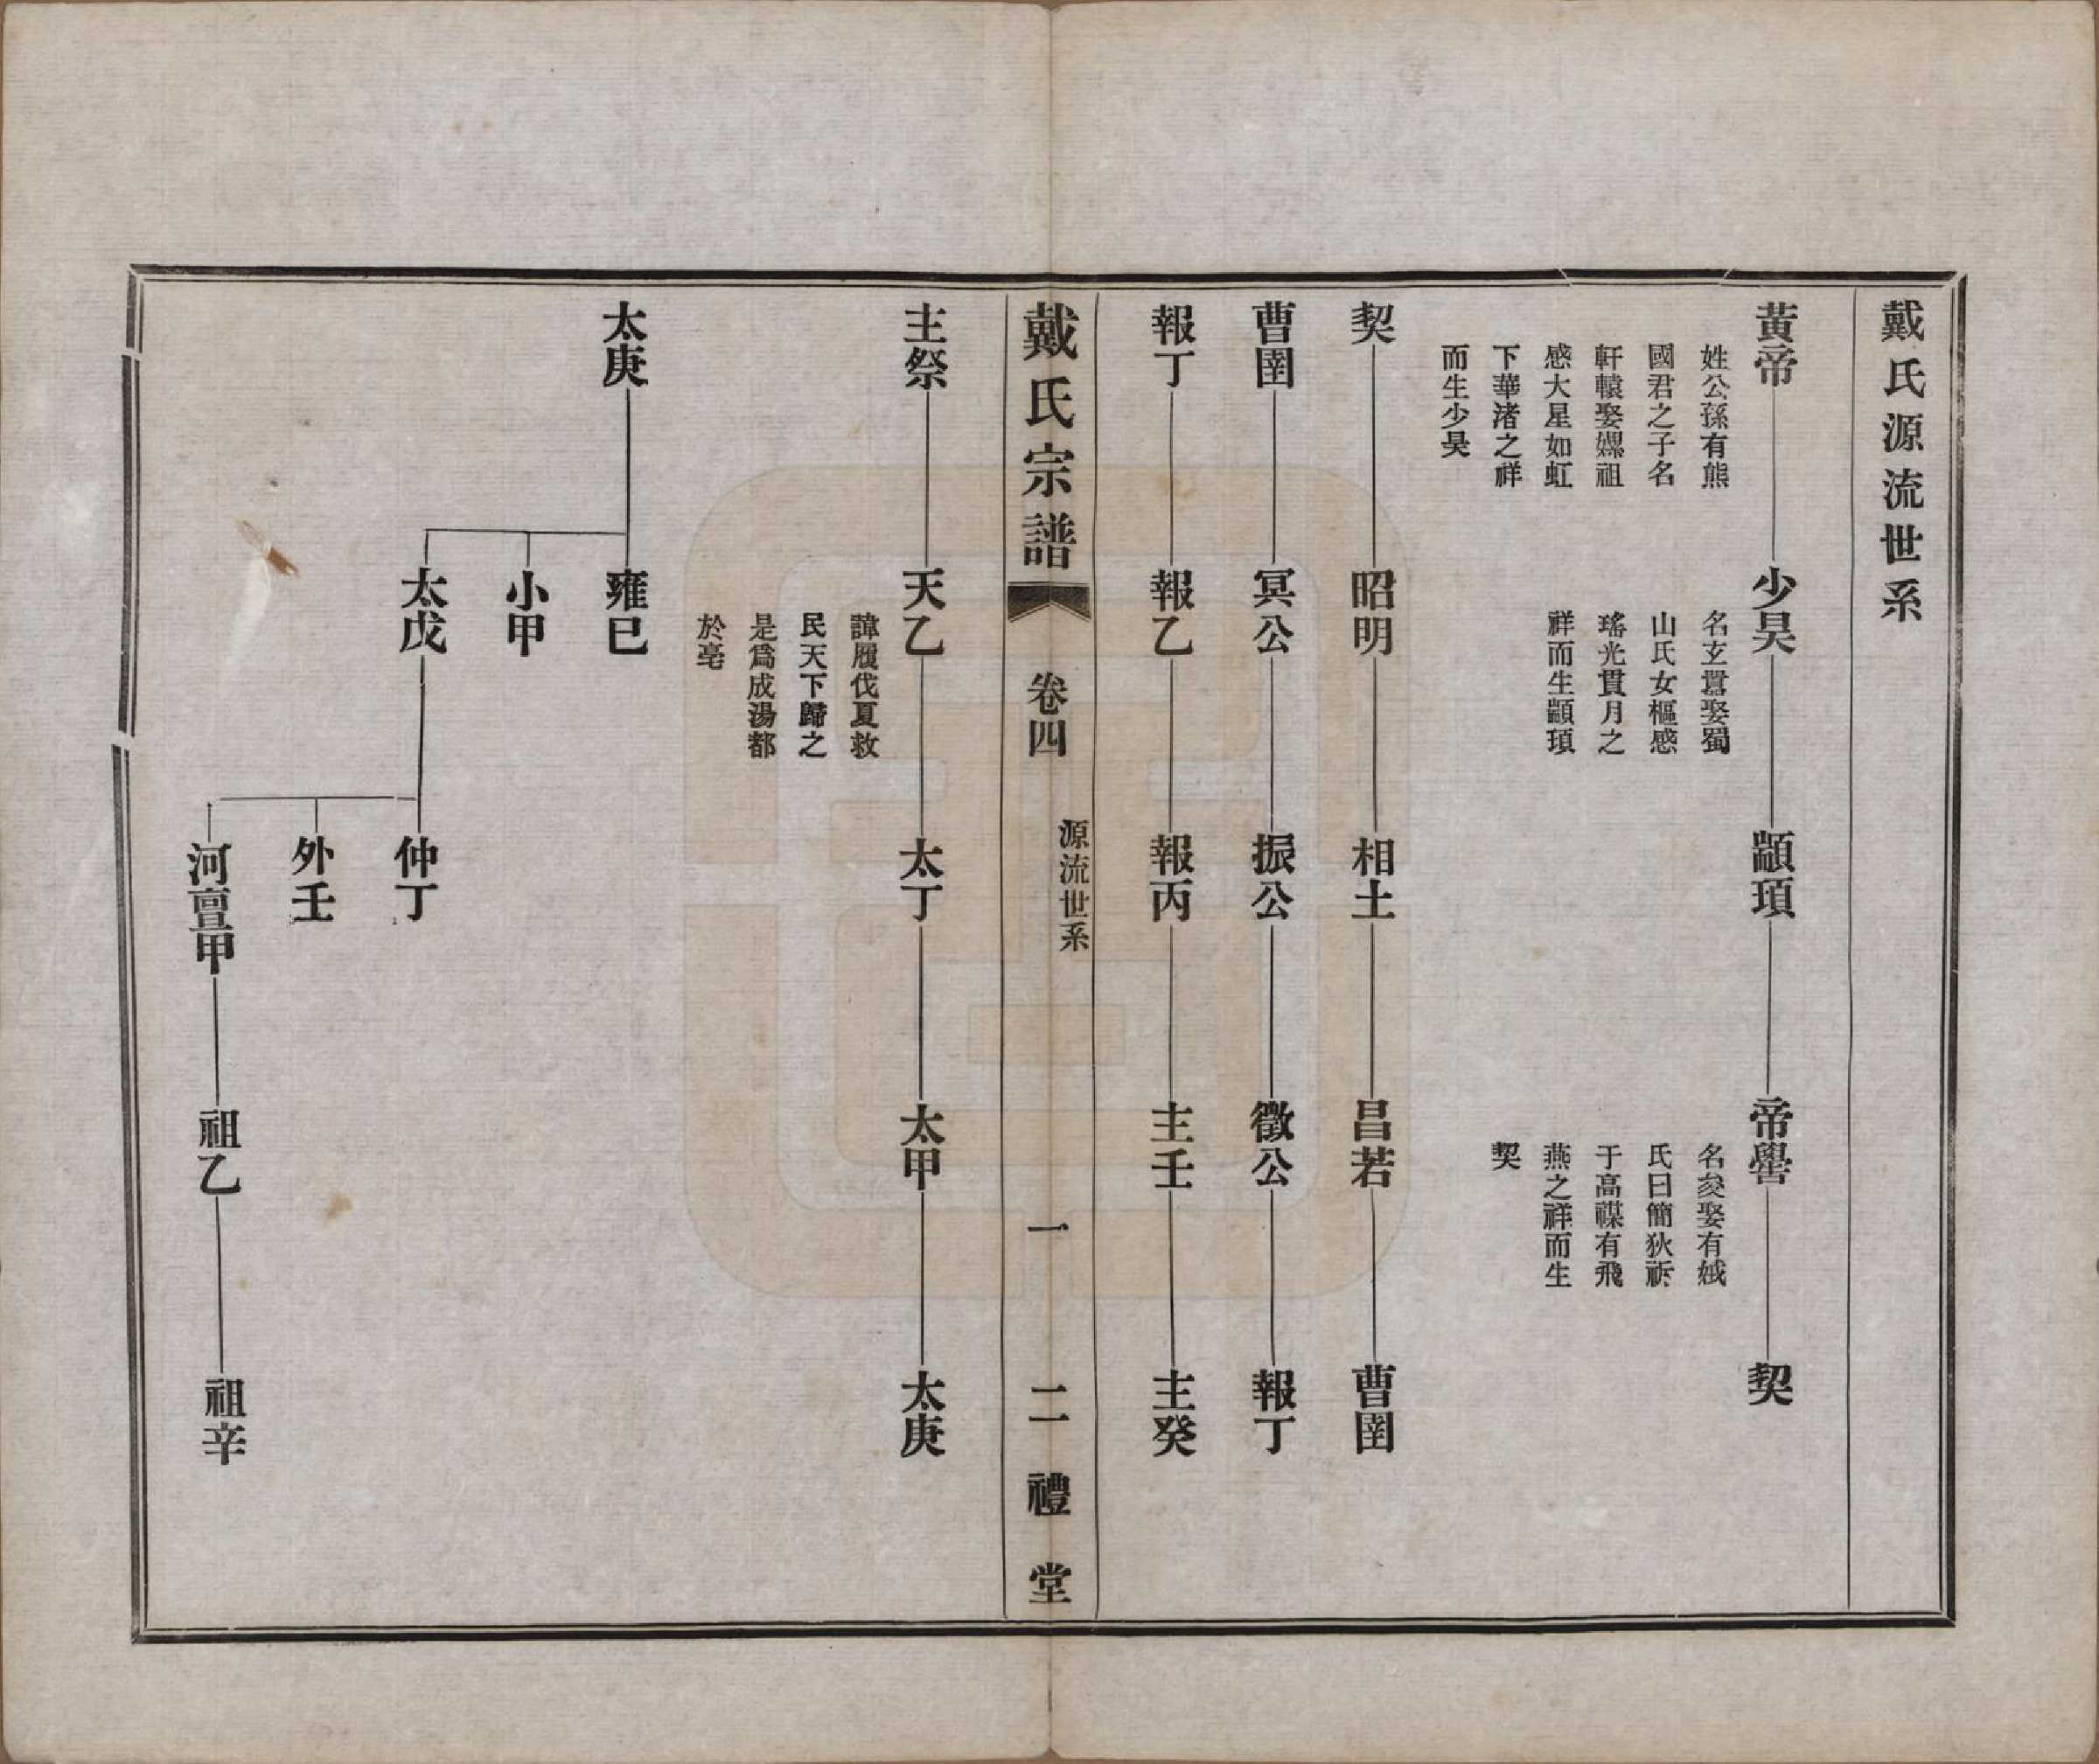 戴氏源流世系
黃帝
姓公孫有熊
國君之子名
軒轅娶嫘祖
感大星如虹
下華渚之祥
而生少昊
少昊
名玄囂娶蜀
山氏女樞感
瑤光貫月之
祥而生顓頊
顓頊
帝嚳
名夋娶有娀
氏曰簡狄祈
于高禖有飛
燕之祥而生
契
契
契
昭明
相土
昌若
曹圉
曹圉
冥公
振公
徵公
報丁
報丁
報乙
報丙
主壬
主癸
戴氏宗譜
卷四
源流世系
一
二禮堂
主祭
天乙
諱履伐夏救
民天下歸之
是爲成湯都
於亳
太丁
太甲
太庚
太庚
雍已
小甲
太戊
仲丁
外壬
河亶甲
祖乙
祖辛